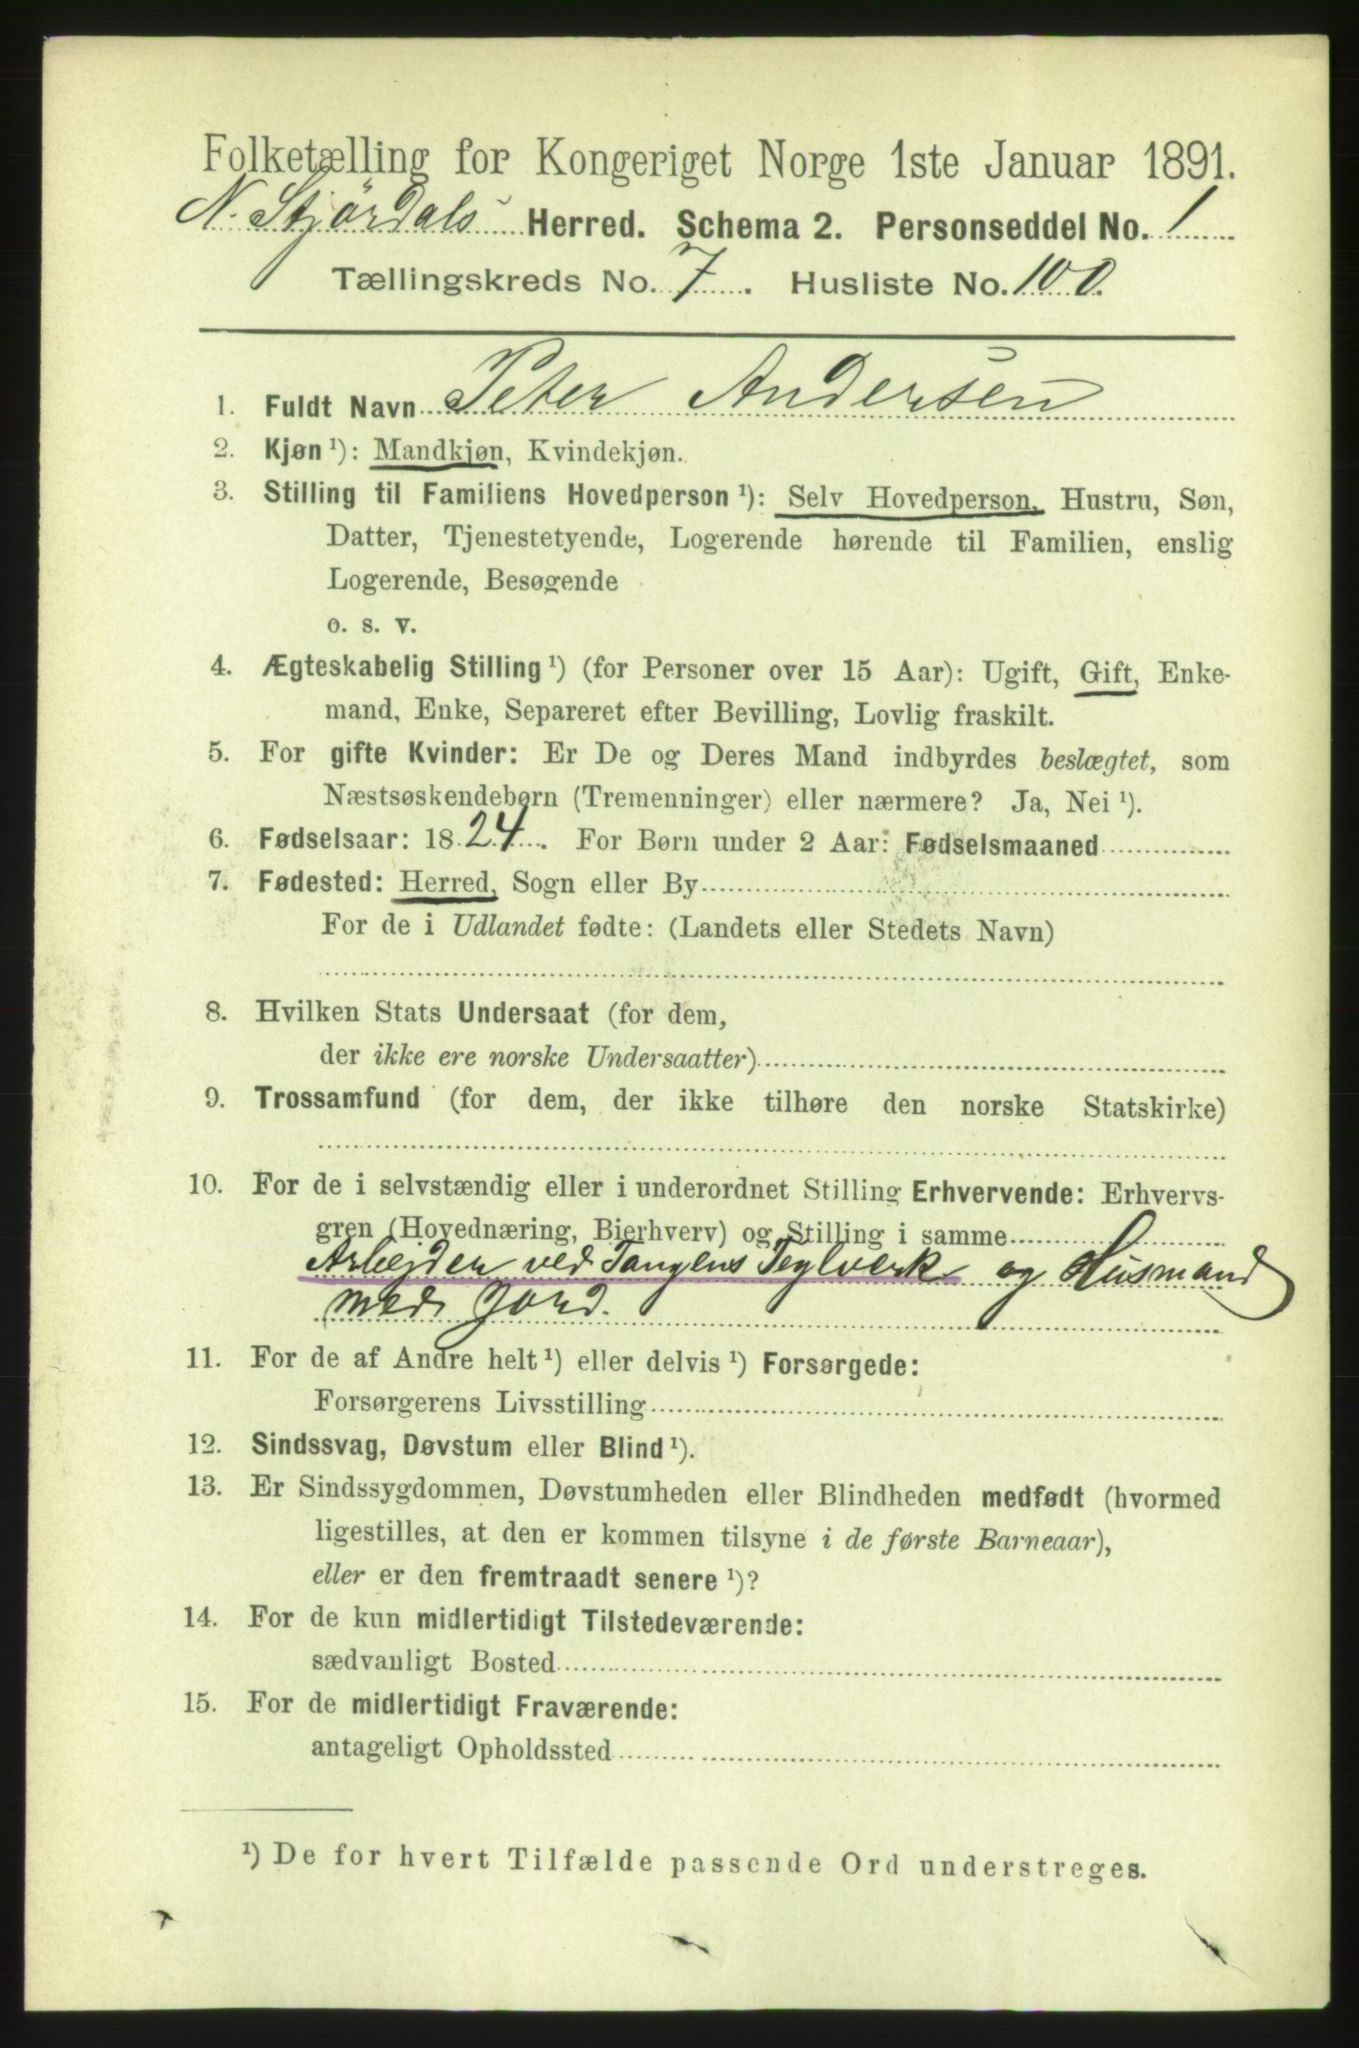 Folketælling for Kongeriget Norge 1ste Januar 1891.
N. Stjørdals Herred. Schema 2. Personseddel No. 1
Tællingskreds No. 7. Husliste No. 100.
1. Fuldt Navn Peter Andersen
2. Kjøn ¹): Mandkjøn, Kvindekjøn.
3. Stilling til Familiens Hovedperson ¹): Selv Hovedperson, Hustru, Søn,
Datter, Tjenestetyende, Logerende hørende til Familien, enslig
Logerende, Besøgende
o. s. v.
4. Ægteskabelig Stilling ¹) (for Personer over 15 Aar): Ugift, Gift, Enke-
mand, Enke, Separeret efter Bevilling, Lovlig fraskilt.
5. For gifte Kvinder: Er De og Deres Mand indbyrdes beslægtet, som
Næstsøskendebørn (Tremenninger) eller nærmere? Ja, Nei ¹).
6. Fødselsaar: 1824. For Børn under 2 Aar: Fødselsmaaned
7. Fødested: Herred, Sogn eller By
For de i Udlandet fødte: (Landets eller Stedets Navn)
8. Hvilken Stats Undersaat (for dem,
der ikke ere norske Undersaatter)
9. Trossamfund (for dem, der ikke tilhøre den norske Statskirke)
10. For de i selvstændig eller i underordnet Stilling Erhvervende: Erhvervs-
gren (Hovednæring, Bierhverv) og Stilling i samme
Arbejder ved Tangens Teglverk og Husmand
med Jord.
11. For de af Andre helt ¹) eller delvis ¹) Forsørgede:
Forsørgerens Livsstilling
12. Sindssvag, Døvstum eller Blind ¹).
13. Er Sindssygdommen, Døvstumheden eller Blindheden medfødt (hvormed
ligestilles, at den er kommen tilsyne i de første Barneaar),
eller er den fremtraadt senere ¹)?
14. For de kun midlertidigt Tilstedeværende:
sædvanligt Bosted
15. For de midlertidigt Fraværende:
antageligt Opholdssted
¹) De for hvert Tilfælde passende Ord understreges.